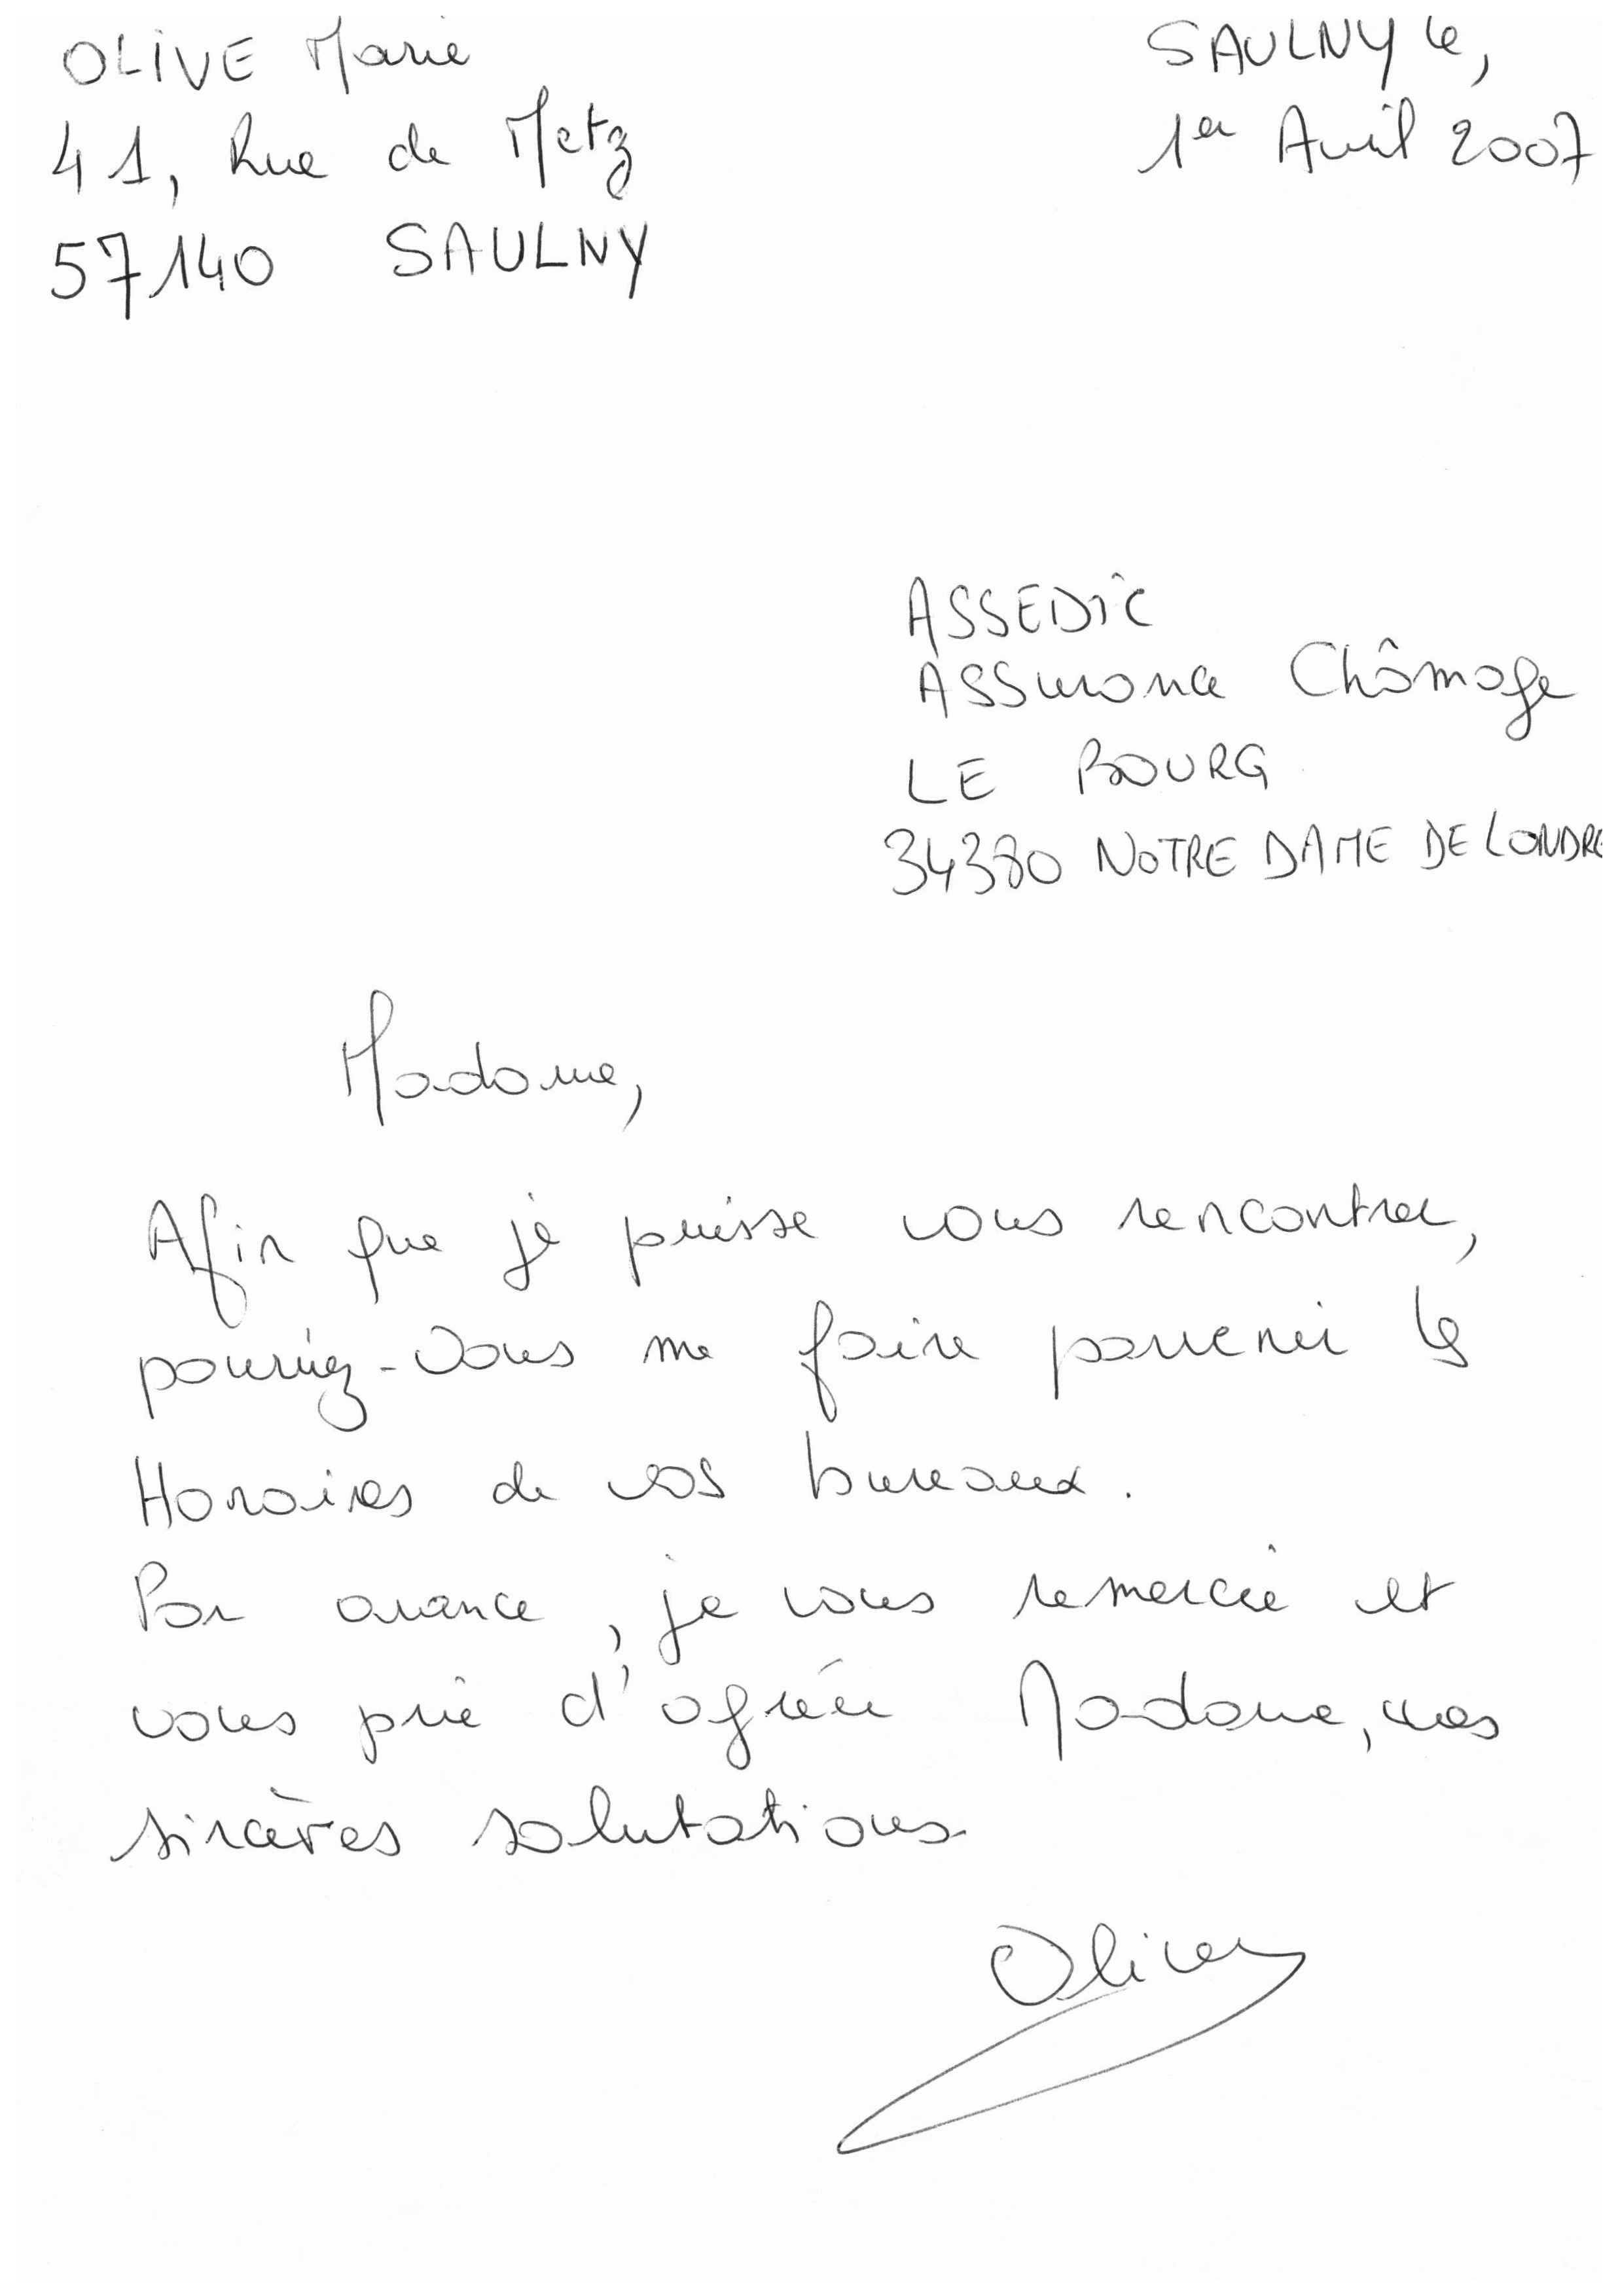 OLIVE Marie
SAULNY le,
41, Rue de Metz
1er Avril 2007
57140 SAULNY
ASSEDIC
ASSurance Chômage
LE BOURG
34380 NOTRE DAME DE LONDRE
Madame,
Afin que je puisse vous rencontrer,
pourriez-vous me faire parvenir les
Horaires de vos bureaux.
Par avance, je vous remercie et
vous prie d'agréer Madame, mes
sincères salutations.
Olive